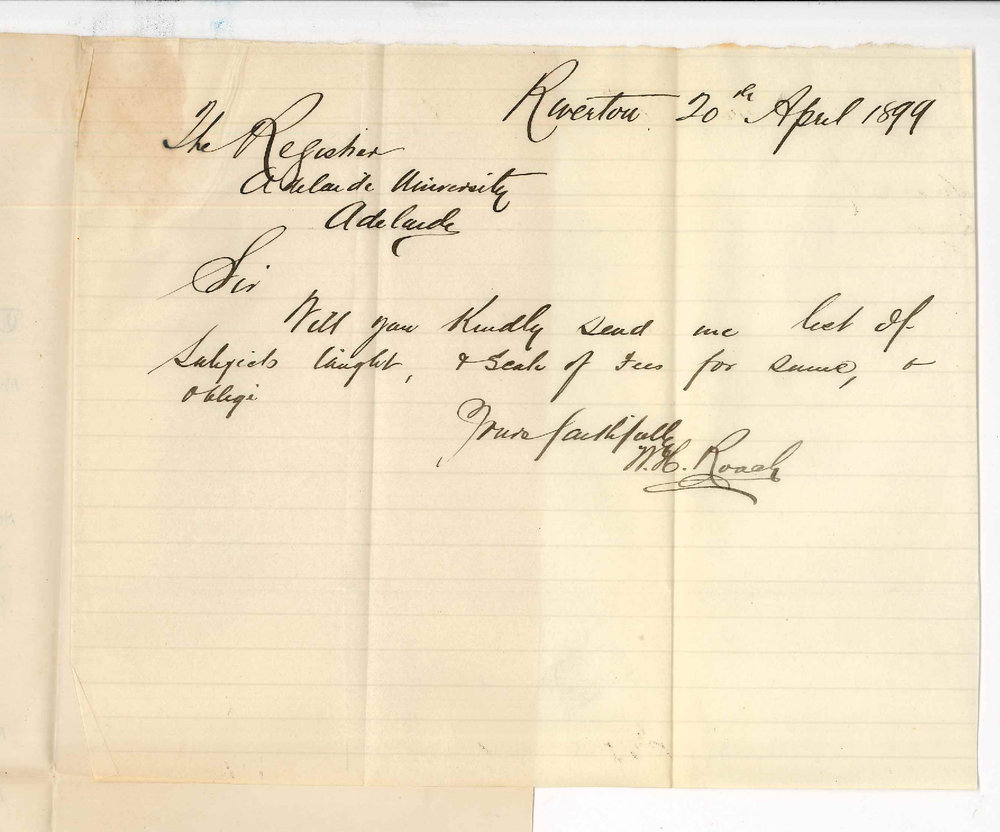 Riverton 20th April 1899
The Registrar
Adelaide University
Adelaide
Sir
Will you Kindly send me list of
Subjects taught, & Scale of Fees for same, &
oblige
Yours faithfully
W.H. Roach